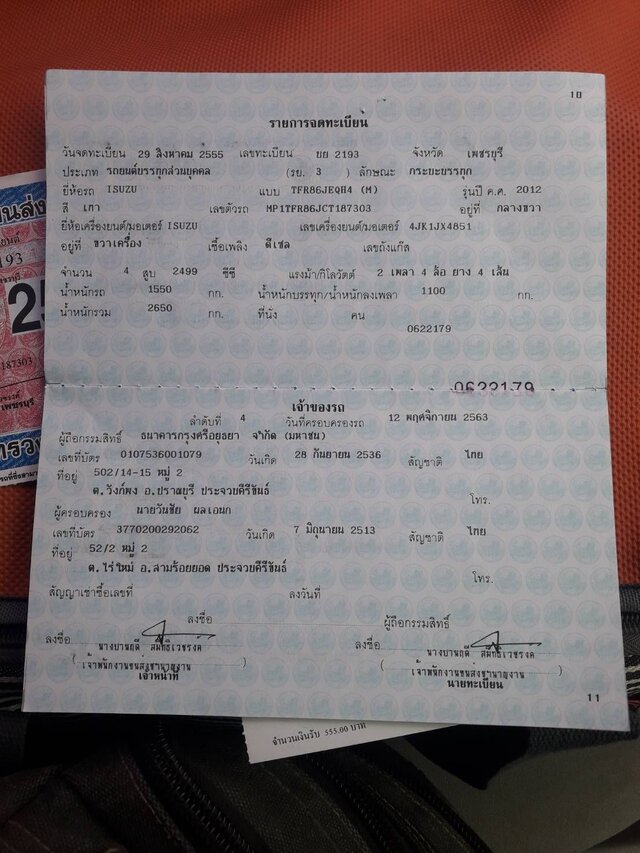 10
รายการจดทะเบียน
วันจดทะเบียน 29 สิงหาคม 2555 เลขทะเบียน ขย 2193 จังหวัด เพชรบุรี
ประเภท รถยนต์บรรทุกส่วนบุคคล (รย. 3 ) ลักษณะ กระบะบรรทุก
ยี่ห้อรถ ISUZU แบบ TFR86JEQH4 (M) รุ่นปี ค.ศ. 2012
สี เทา เลขตัวรถ MP1TFR86JCT187303 อยู่ที่ กลางขวา
ยี่ห้อเครื่องยนต์/มอเตอร์ ISUZU เลขเครื่องยนต์/มอเตอร์ 4JK1JX4851
อยู่ที่ ขวาเครื่อง เชื้อเพลิง ดีเซล เลขถังแก๊ส
จำนวน 4 สูบ 2499 ซีซี แรงม้า/กิโลวัตต์ 2 เพลา 4 ล้อ ยาง 4 เส้น
น้ำหนักรถ 1550 กก. น้ำหนักบรรทุก/น้ำหนักลงเพลา 1100 กก.
น้ำหนักรวม 2650 กก. ที่นั่ง คน
0622179
0622179
เจ้าของรถ
ลำดับที่ 4 วันที่ครอบครองรถ 12 พฤศจิกายน 2563
ผู้ถือกรรมสิทธิ์ ธนาคารกรุงศรีอยุธยา จำกัด (มหาชน)
เลขที่บัตร 0107536001079 วันเกิด 28 กันยายน 2536 สัญชาติ ไทย
ที่อยู่ 502/14-15 หมู่ 2
ต.วังก์พง อ.ปราณบุรี ประจวบคีรีขันธ์ โทร.
ผู้ครอบครอง นายวันชัย ผลเอนก
เลขที่บัตร 3770200292062 วันเกิด 7 มิถุนายน 2513 สัญชาติ ไทย
ที่อยู่ 52/2 หมู่ 2
ต.ไร่ใหม่ อ.สามร้อยยอด ประจวบคีรีขันธ์ โทร.
สัญญาเช่าซื้อเลขที่ ลงวันที่
ลงชื่อ ผู้ถือกรรมสิทธิ์
ลงชื่อ ลงชื่อ
( เจ้าพนักงานขนส่งชำนาญงาน ) ( เจ้าพนักงานขนส่งชำนาญงาน )
เจ้าหน้าที่ นายทะเบียน
11
จำนวนเงินรับ 555.00 บาท
2193
25
187303
เพชรบุรี